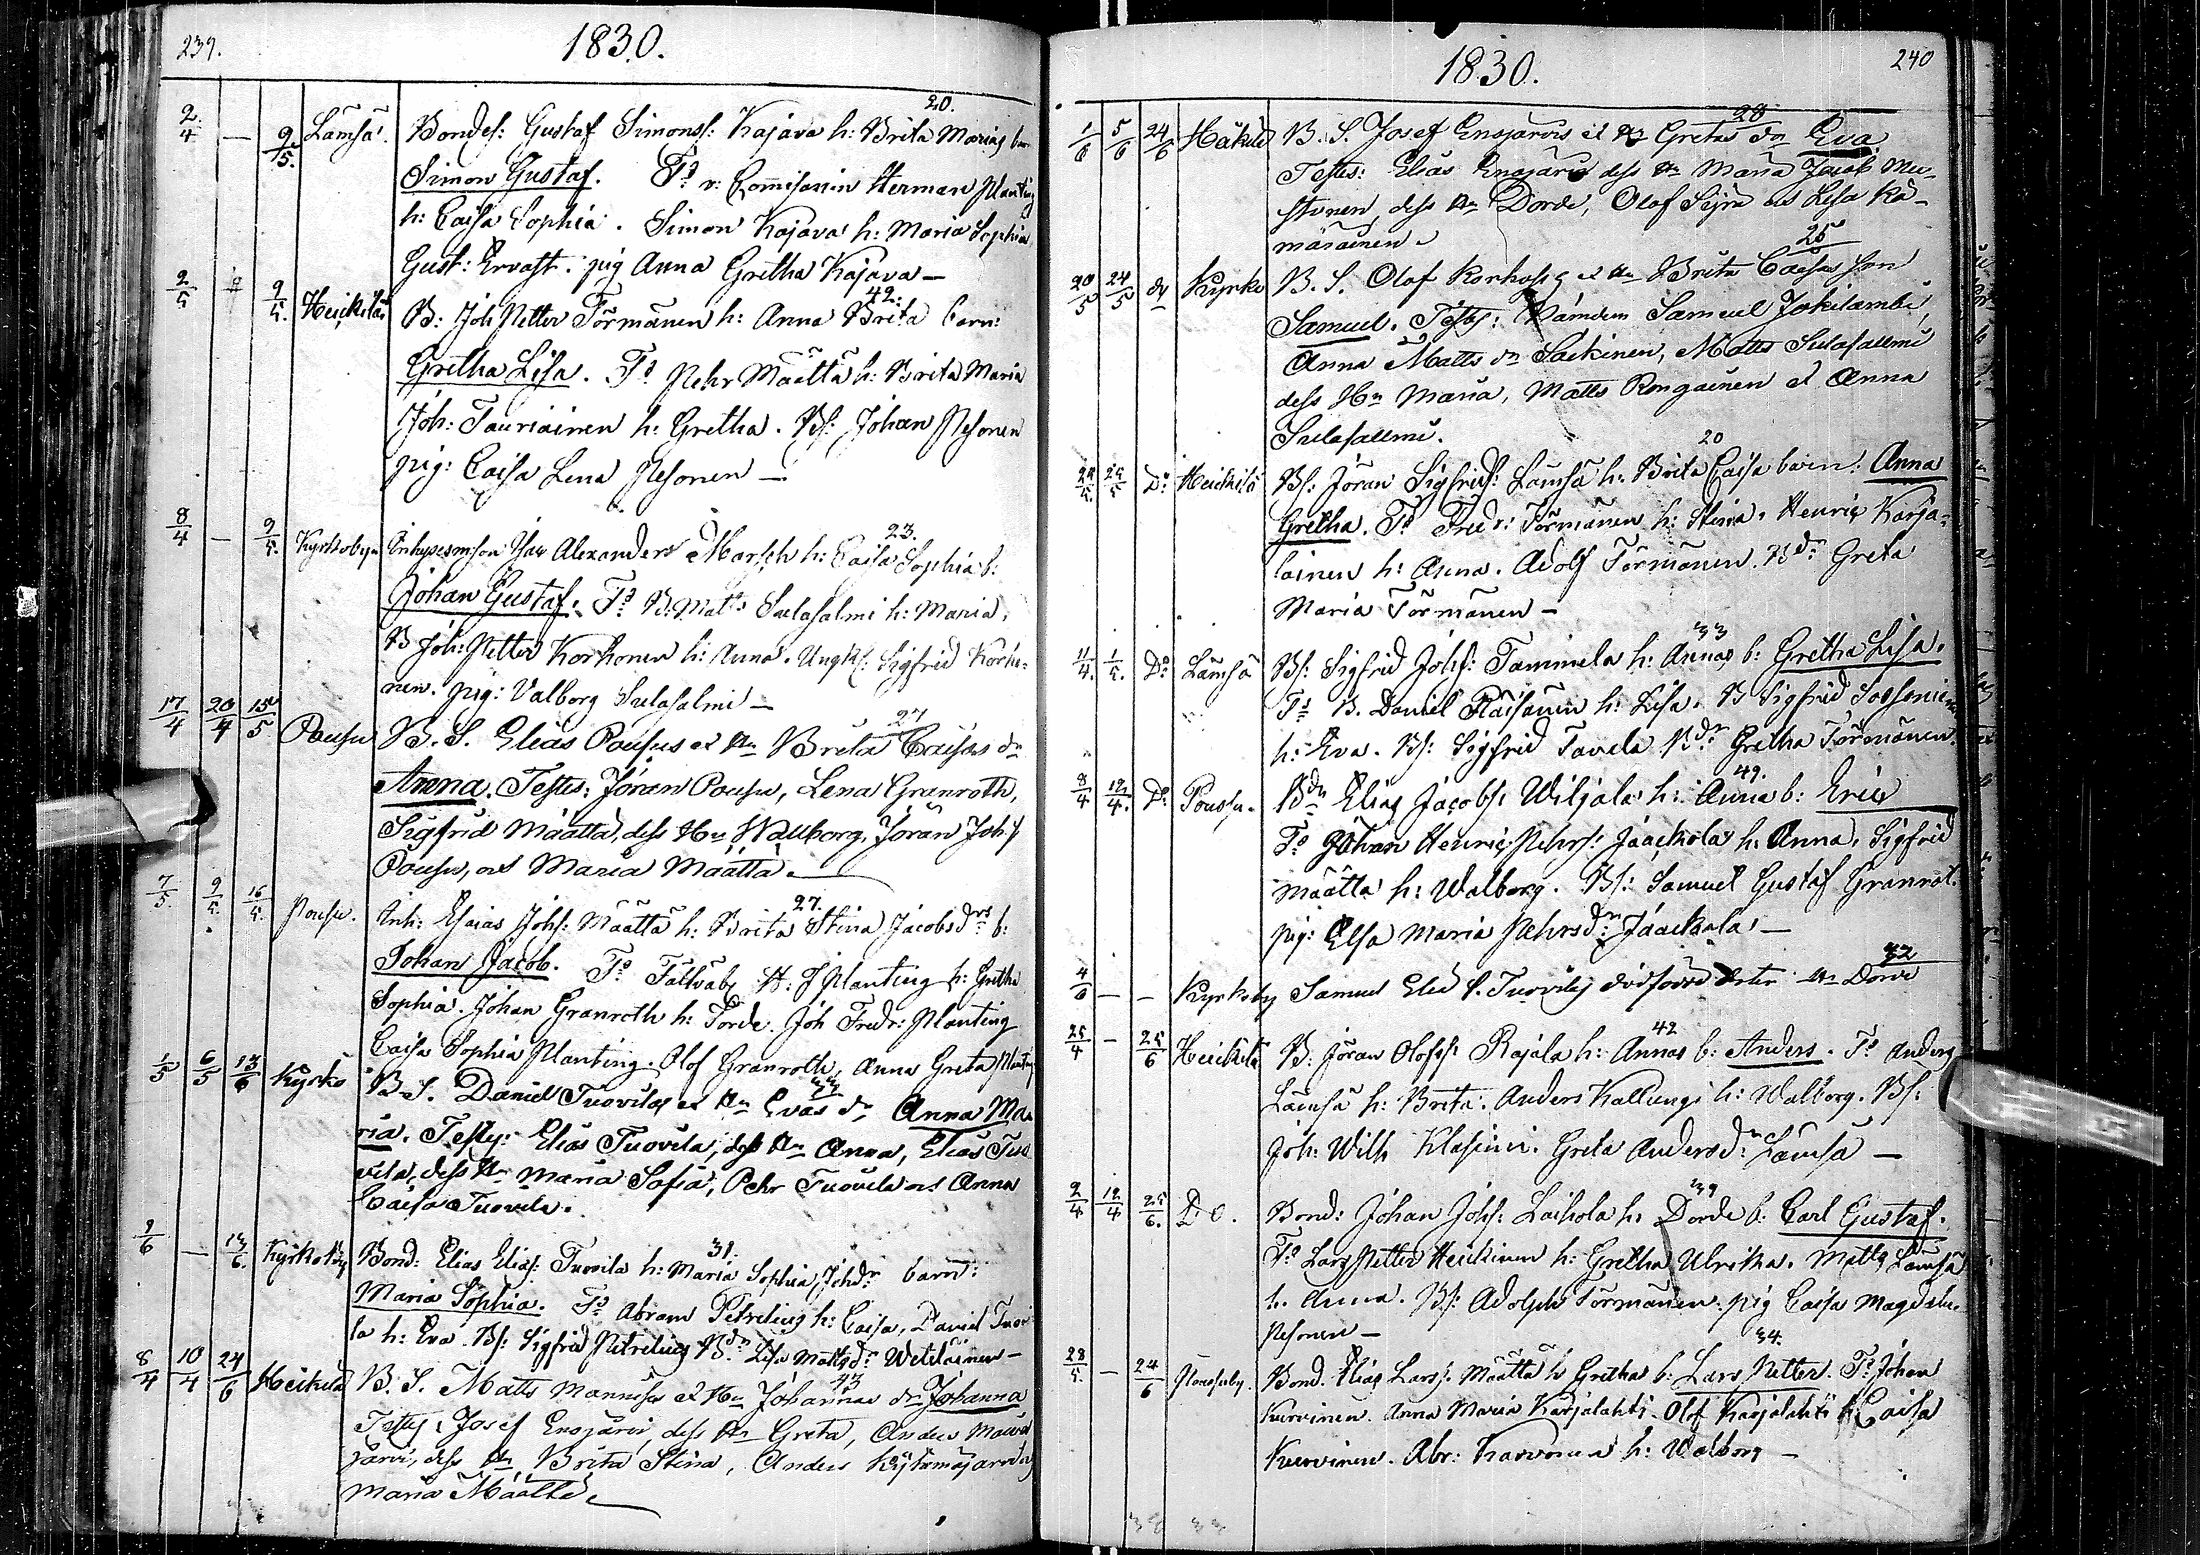 239.
1830.
2/4 — 9/5. Lämsä. Bondes: Gustaf Simonss: Kajava h: Brita Marias barn 20.
Simon Gustaf. Ts v: Commissarien Herman Planting
h: Caisa Sophia. Simon Kajava h: Maria Sophia
Gust: Ervast. pig Anna Gretha Kajava —
2/5 9/5. Heickilä B: Joh Petter Törmänen h: Anna Brita barn: 42.
Gretha Lisa. Ts Pehr Määttä h: Brita Maria
Joh: Tauriainen h: Gretha. Bs: Johan Pesonen
pig: Caisa Lena Pesonen —
8/4 — 9/5. Kyrkobyn Alexanders h: Caisa Sophia b: 23.
Johan Gustaf. Ts B. Matts Sulasalmi h: Maria.
B Joh: Petter Korhonen h: Anna. Ungk: Sigfrid Korho-
nen. pig: Valborg Sulasalmi —
17/4 20/4 15/5 Pousu B. S. Elias Pousus et Hu Brita Caisas dr 27
Anna. Testes: Jöran Pousu, Lena Granroth,
Sigfrid Määttä, dess Hu Wallborg, Jöran Johs
Pousu, och Maria Määttä.
7/5 9/5. 16/5. Pousu. Inh: Esaias Johs: Määttä h: Brita Stina Jacobsdrs b: 27.
Johan Jacob. Ts Fältväb. H. J Planting h: Gretha
Sophia. Johan Granroth h: Dorde. Joh Fredr: Planting
Caisa Sophia Planting. Olof Granroth, Anna Greta Planting
1/5 6/5 13/6 Kyrko B. S. Daniel Tuovilas et Hu Evas dr Anna Ma- 33
ria. Testes: Elias Tuovila, dess Hu Anna, Elias Tuo
vila, dess Hu Maria Sofia, Pehr Tuovila och Anna
Caisa Tuovila.
9/6 — 13/6. Kyrkoby Bond: Elias Elias: Tuovila h: Maria Sophia Johsdr barn: 31.
Maria Sophia. Ts Abram Petrelius h: Caisa, Daniel Tuovi
la h: Eva. Bs: Sigfrid Petrelius Bdr Lisa Mattsdr Weteläinen —
8/4 10/4 24/6 Heikilä B. S. Matts et Hu Johannas dr Johanna 43
Testes: Josef Enojärvi, dess Hu Greta, Anders
järvi, dess Hu Brita Stina, Anders
Maria Määttä.
1830.
240
1/6 5/6 24/6 Häkilä B. S. Josef Enojärvis et Hu Gretas dr Eva 28
Testes: Elias Enojärvi dess Hu Maria Jacob Mu-
stonen, dess Hu Dorde, Olof Sirja och Lisa Kä-
märäinen.
20/5 24/5 Kyrko B. S. Olof Korhos et Hu Brita Caisas son 25
Samuel. Testes: Nämdem Samuel Jokilambi,
Anna Matts dr Säckinen, Matts Sulasallmi
dess Hu Maria, Matts Rongainen et Anna
Sulasallmi.
24/5 25/5 Do Heickilä Bs: Jöran Sigfrids: Lämsä h: Brita Caisa barn: Anna 20
Gretha. Ts Fredr: Törmänen h: Stina. Henric Karja-
lainen h: Anna. Adolf Törmänen. Bdr Greta
Maria Törmänen —
11/4. 1/5. Do Lämsä Bs: Sigfrid Johs: Tammela h: Annas b: Gretha Lisa. 33
Ts B. Daniel Räisänen h: Lisa. B Sigfrid
h: Eva. Bs: Sigfrid Tavela Bdr Gretha Törmänen.
8/4 12/4. Do Poussu. Bdn Elias Jacobs: Wiljala h: Anna b: Eric 49.
Ts Johan Henric Pehrs: Jääskola h. Anna. Sigfrid
Määttä h: Walborg. Bs: Samuel Gustaf Granrot.
pig: Elsa Maria Pehrsdr: Jääskola. —
4/6 — — Kyrkoby Samuel Elis s. Tuovilas dödfödd dotter Hu Dorde 32
25/4 — 25/6 Heickilä B: Jöran Olofss: Rajala h: Annas b: Anders. Ts Anders 42
Lämsä h: Brita. Anders Kallungi h: Walborg. Bs:
Joh: Wilh Greta Andersdr: Lämsä —
2/4 12/4 25/6. Do. Bond: Johan Johs: Laihola h: Dorde b: Carl Gustaf. 39
Ts Lars Petter Heickinen h: Gretha Ulrika. Matts Lämsä
h. Anna. Bs: Adolph Törmänen. pig Caisa Magdale.
Pesonen —
28/5. — 24/6 Pousuby. Bond. Elias Larss. Määttä h Grethas b: Lars Petter. Ts Johan 34.
Kurvinen. Anna Maria Karjalahti. Olof Karjalahti h: Caisa
Kurvinen. Abr: Karvonen h: Walborg —